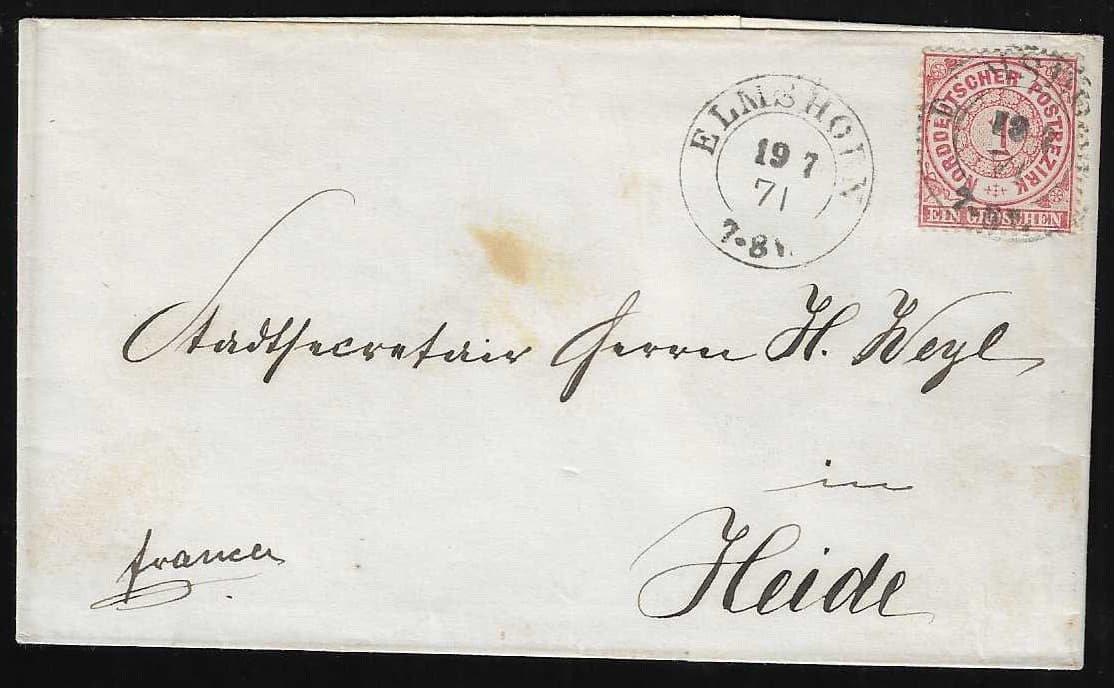 ELMSHORN
19 7
71
7-8 V.
NORDDEUTSCHER POSTBEZIRK
1
EIN GROSCHEN
19
Stadtsecretair Herrn H. Weyl
in
Heide
franco